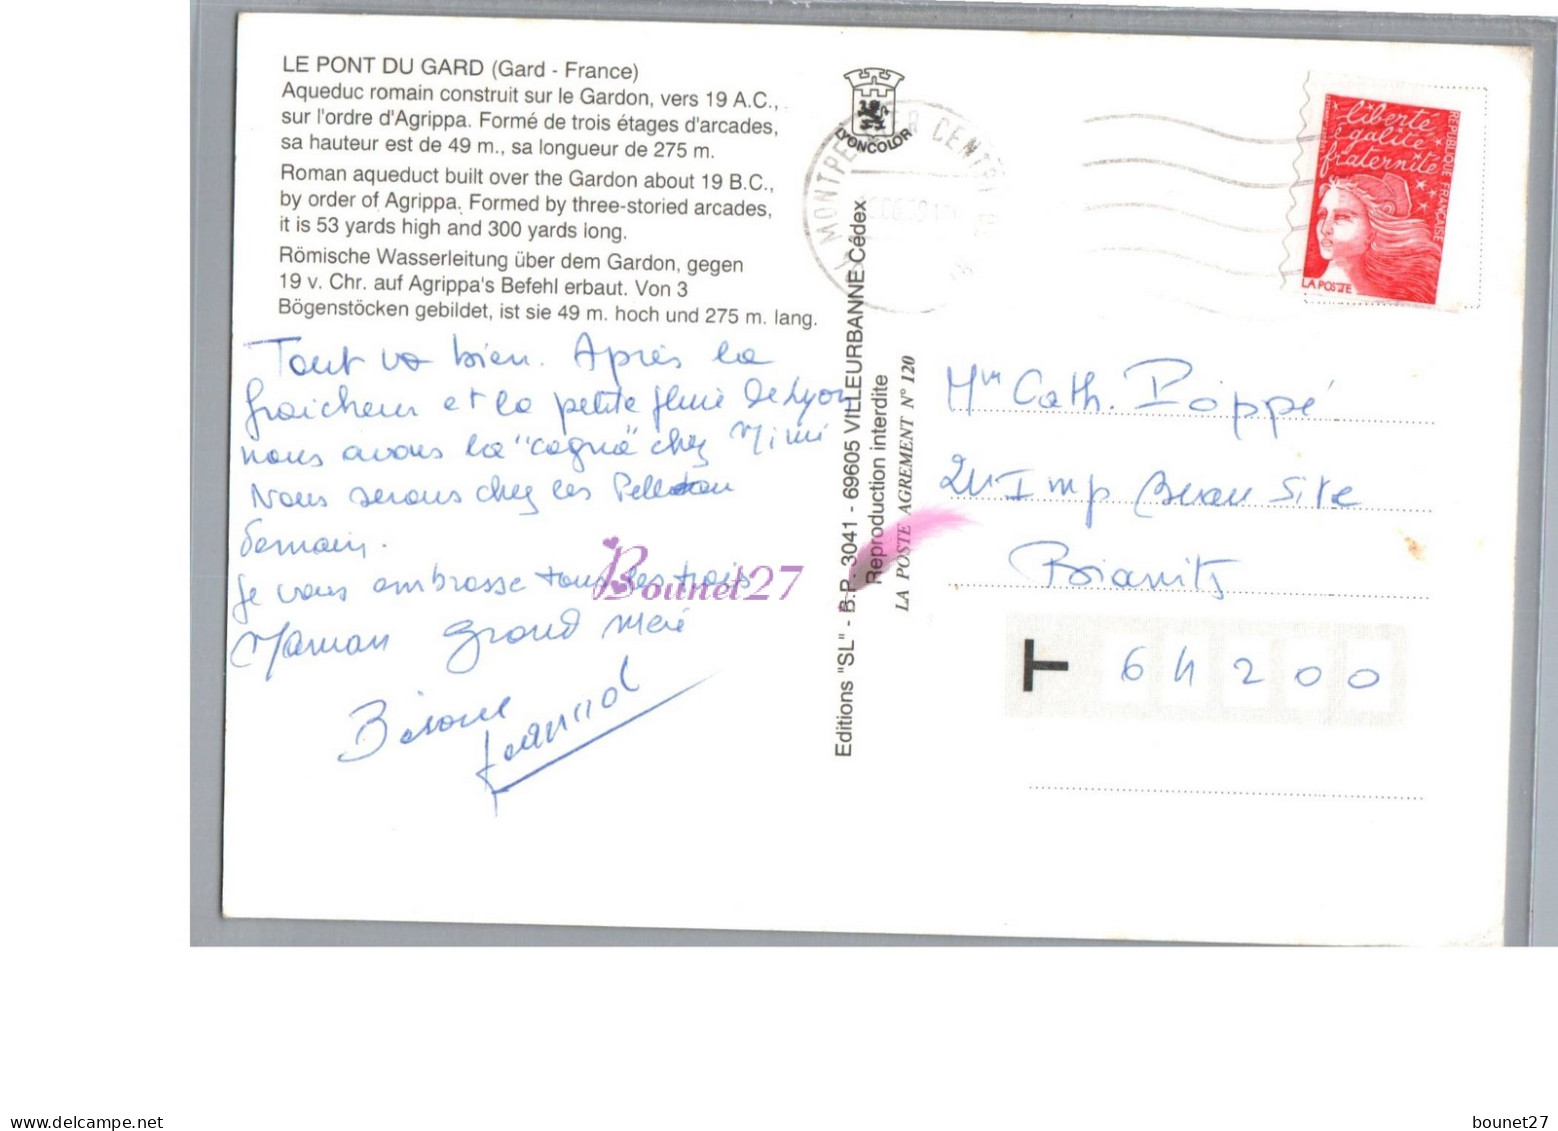 LE PONT DU GARD (Gard - France)
Aqueduc romain construit sur le Gardon, vers 19 A.C.,
sur l'ordre d'Agrippa. Formé de trois étages d'arcades,
sa hauteur est de 49 m., sa longueur de 275 m.
Roman aqueduct built over the Gardon about 19 B.C.,
by order of Agrippa. Formed by three-storied arcades,
it is 53 yards high and 300 yards long.
Römische Wasserleitung über dem Gardon, gegen
19 v. Chr. auf Agrippa's Befehl erbaut. Von 3
Bögenstöcken gebildet, ist sie 49 m. hoch und 275 m. lang.
Tout va bien. Après la
fraicheur et la petite pluie de Lyon
nous avons la "cagna" chez Mimi
Nous serons chez les
demain.
Je vous embrasse tous les trois
Maman grand mère
LYONCOLOR
MONTPELLIER CENTRE
Editions "SL" - B.P. 3041 - 69605 VILLEURBANNE Cédex
Reproduction interdite
LA POSTE AGREMENT N° 120
liberté
égalité
fraternité
REPUBLIQUE FRANÇAISE
LA POSTE
Cath. Poppé
Imp Beau Site
Biarritz
T 64200
Bounet27
delcampe.net
bounet27